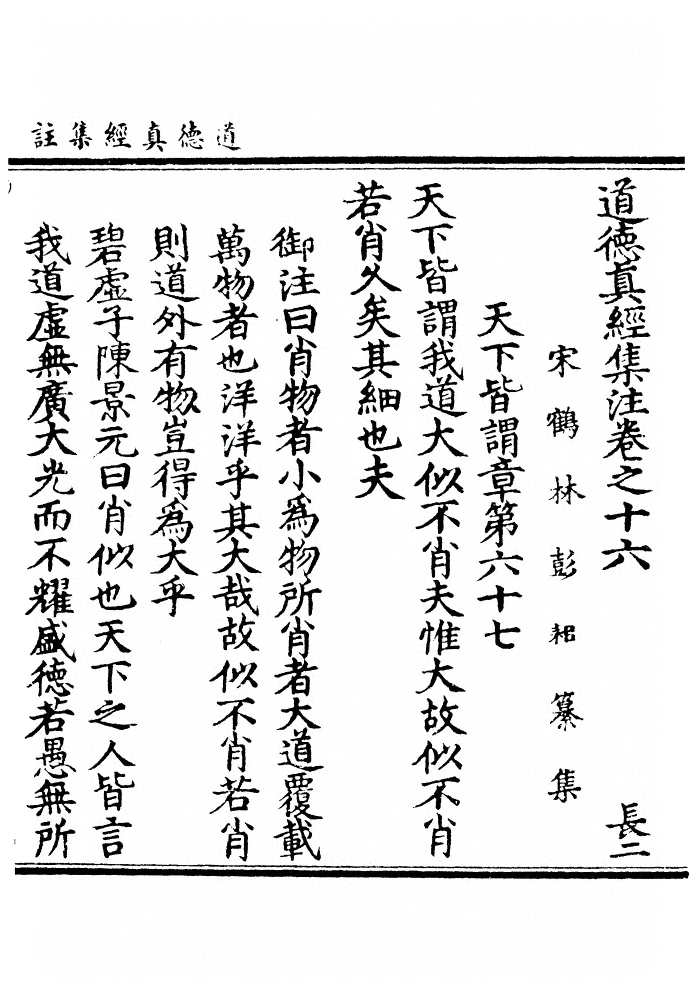 道德真經集註
道德真經集注卷之十六
長二
宋鶴林彭耜纂集
天下皆謂章第六十七
天下皆謂我道大似不肖夫惟大故似不肖
若肖久矣其細也夫
御注曰肖物者小為物所肖者大道覆載
萬物者也洋洋乎其大哉故似不肖若肖
則道外有物豈得為大乎
碧虛子陳景元曰肖似也天下之人皆言
我道虛無廣大光而不耀盛德若愚無所